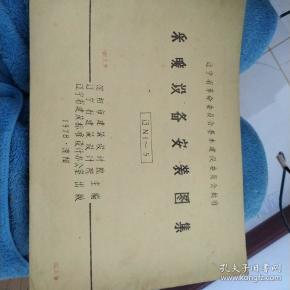 辽宁省革命委员会基本建设委员会批准
采暖设备安装图集
辽N1~5
沈阳市建筑设计院 主编
辽宁省建筑设计院
辽宁省建筑标准设计办公室 出版
1978·沈阳
孔夫子旧书网